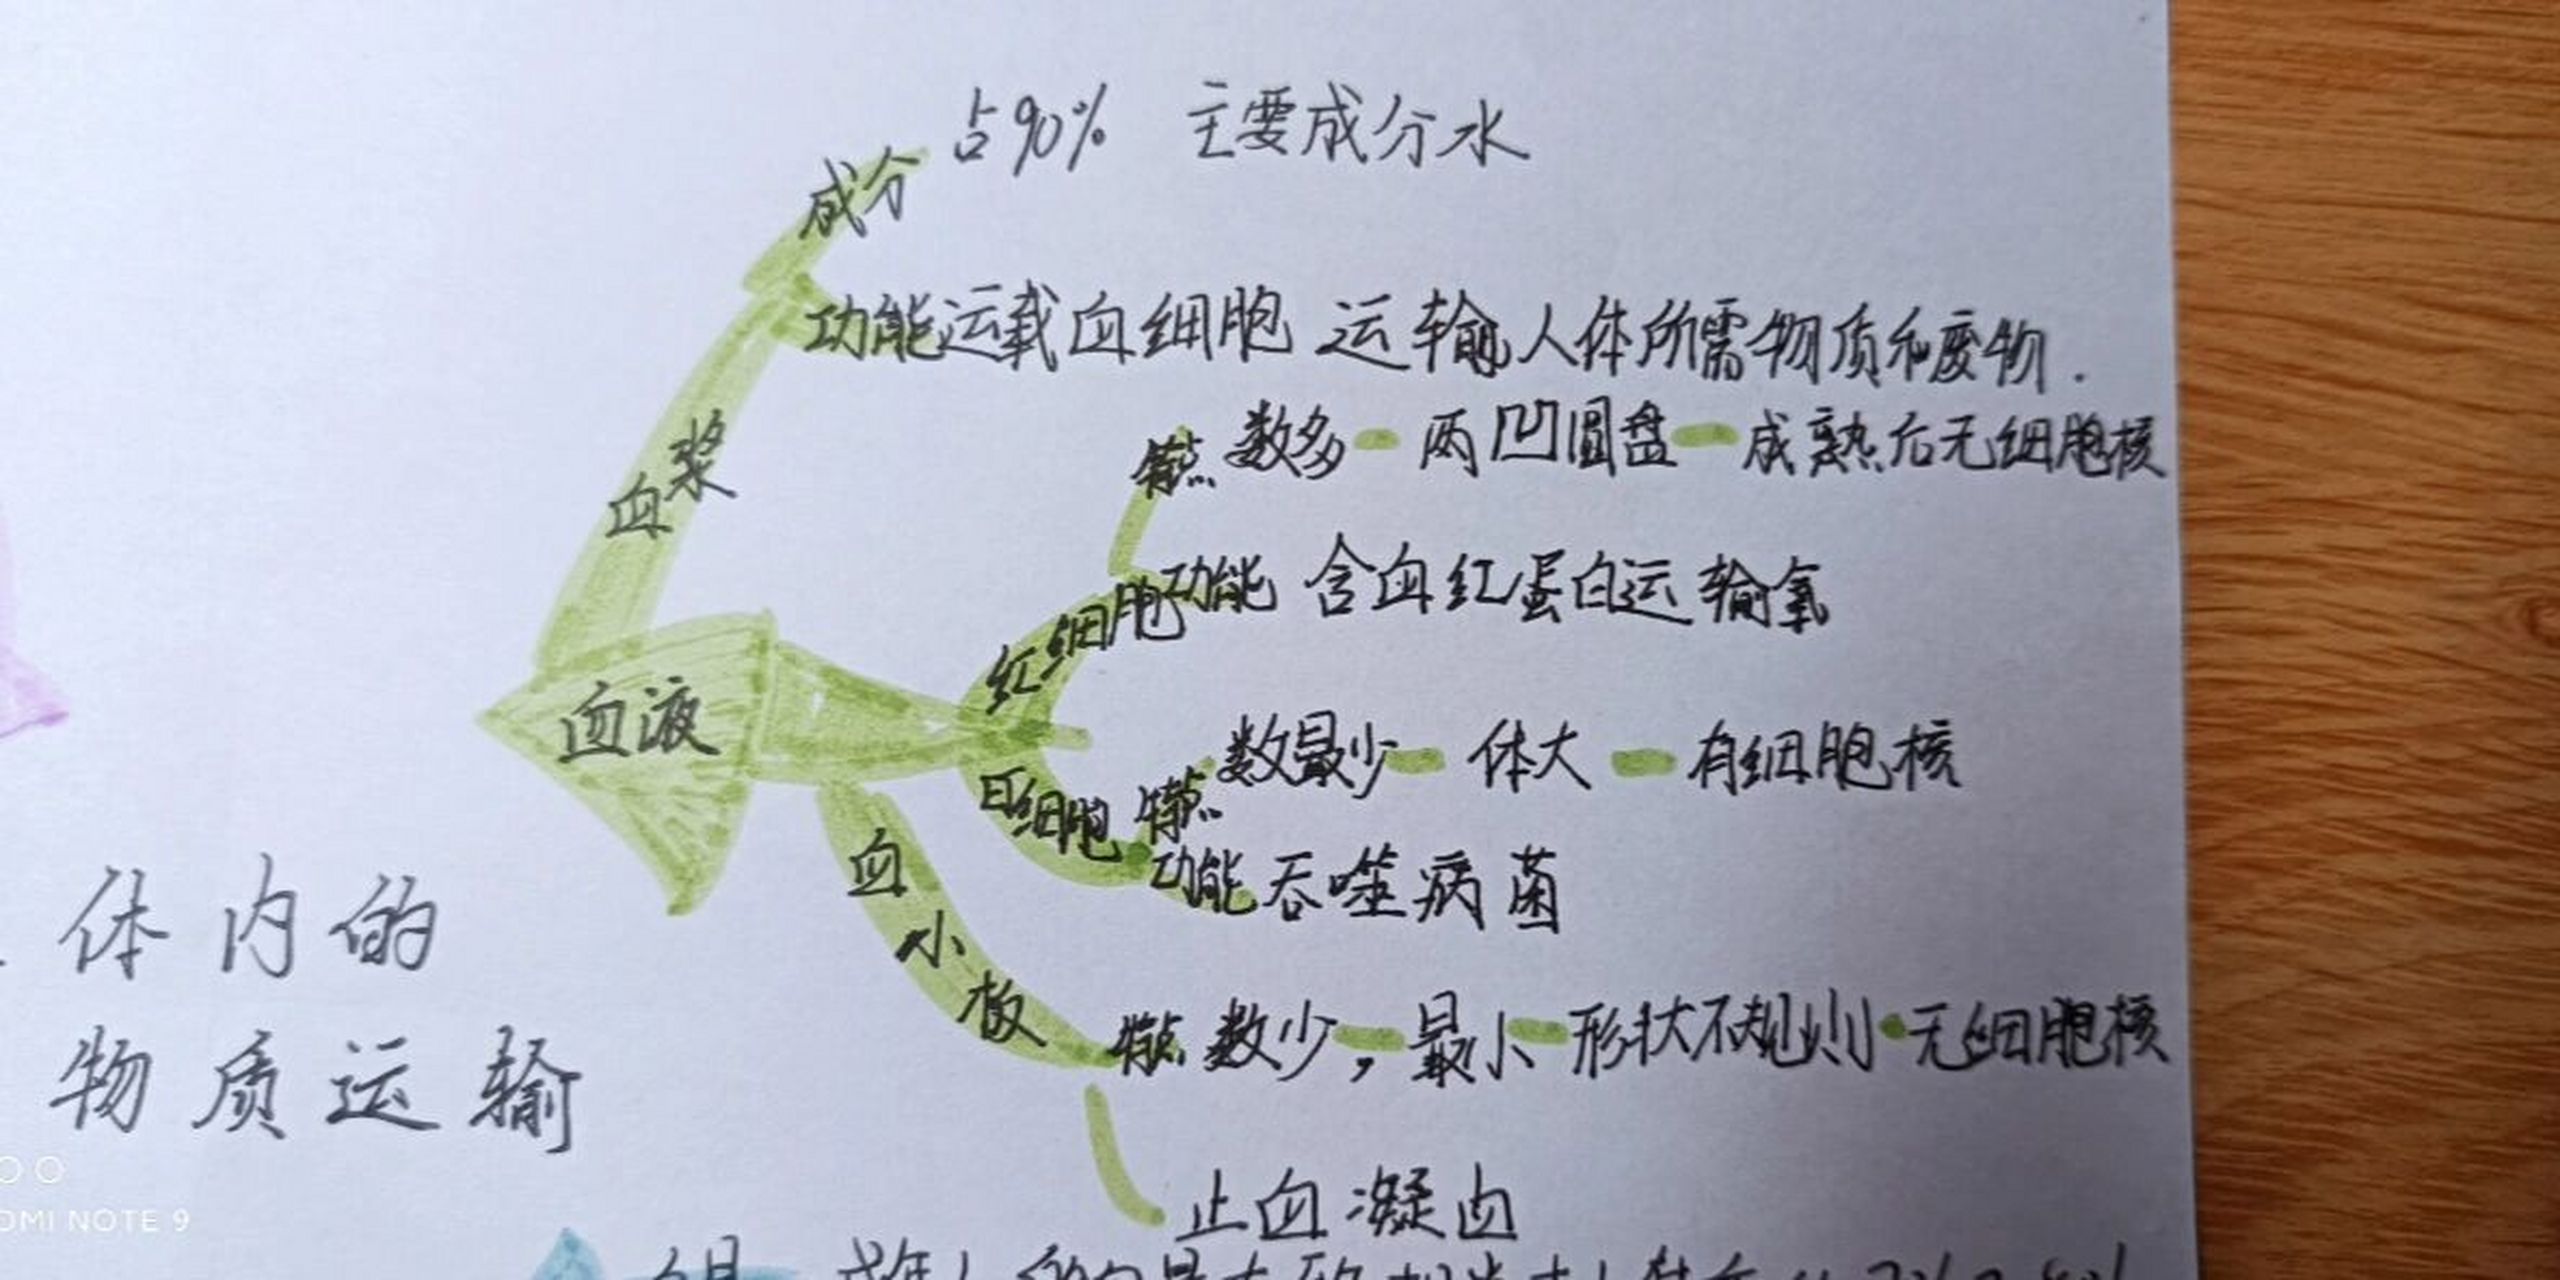 成分 占90% 主要成分水
功能运载血细胞 运输人体所需物质和废物.
血浆
特点 数多 两凹圆盘 成熟后无细胞核
红细胞 功能 含血红蛋白运输氧
血液
数最少 体大 有细胞核
白细胞 特点
功能 吞噬病菌
血小板
特点 数少, 最小 形状不规则 无细胞核
止血 凝血
体内的
物质运输
OMI NOTE 9